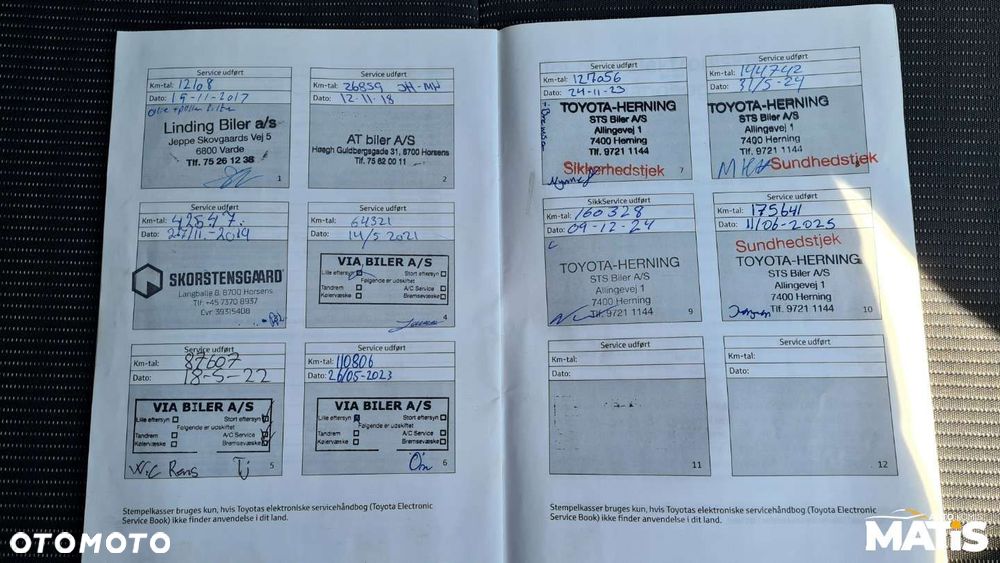 Service udført
Km-tal: 12108
Dato: 15-11-2017
Linding Biler a/s
Jeppe Skovgaards Vej 5
6800 Varde
Tlf. 75 26 12 38
1
Service udført
Km-tal: 26859 JH-MW
Dato: 12-11-18
AT biler A/S
Høegh Guldbergsgade 31, 8700 Horsens
Tlf. 75 62 00 11
2
Service udført
Km-tal: 42547
Dato: 27/11.-2019
SKORSTENSGAARD
Langballe 8, 8700 Horsens
Tlf: +45 7370 8937
Cvr: 39315408
Service udført
Km-tal: 64321
Dato: 14/5 2021
VIA BILER A/S
Lille eftersyn Stort eftersyn
Følgende er udskiftet
Tandrem A/C Service
Kølervæske Bremsevæske
4
Service udført
Km-tal: 87607
Dato: 18-5-22
VIA BILER A/S
Lille eftersyn Stort eftersyn
Følgende er udskiftet
Tandrem A/C Service
Kølervæske Bremsevæske
5
Service udført
Km-tal: 110806
Dato: 26/05-2023
VIA BILER A/S
Lille eftersyn Stort eftersyn
Følgende er udskiftet
Tandrem A/C Service
Kølervæske Bremsevæske
6
Stempelkasser bruges kun, hvis Toyotas elektroniske servicehåndbog (Toyota Electronic
Service Book) ikke finder anvendelse i dit land.
Service udført
Km-tal: 127056
Dato: 24-11-23
TOYOTA-HERNING
STS Biler A/S
Allingevej 1
7400 Herning
Tlf. 9721 1144
Sikkerhedstjek
7
Service udført
Km-tal: 144742
Dato: 31/5-24
TOYOTA-HERNING
STS Biler A/S
Allingevej 1
7400 Herning
Tlf. 9721 1144
Sundhedstjek
8
SikkService udført
Km-tal: 160328
Dato: 09-12-24
TOYOTA-HERNING
STS Biler A/S
Allingevej 1
7400 Herning
Tlf. 9721 1144
9
Service udført
Km-tal: 175641
Dato: 11/06-2025
Sundhedstjek
TOYOTA-HERNING
STS Biler A/S
Allingevej 1
7400 Herning
Tlf. 9721 1144
10
Service udført
Km-tal:
Dato:
11
Service udført
Km-tal:
Dato:
12
Stempelkasser bruges kun, hvis Toyotas elektroniske servicehåndbog (Toyota Electronic
Service Book) ikke finder anvendelse i dit land.
OTOMOTO
MATIS